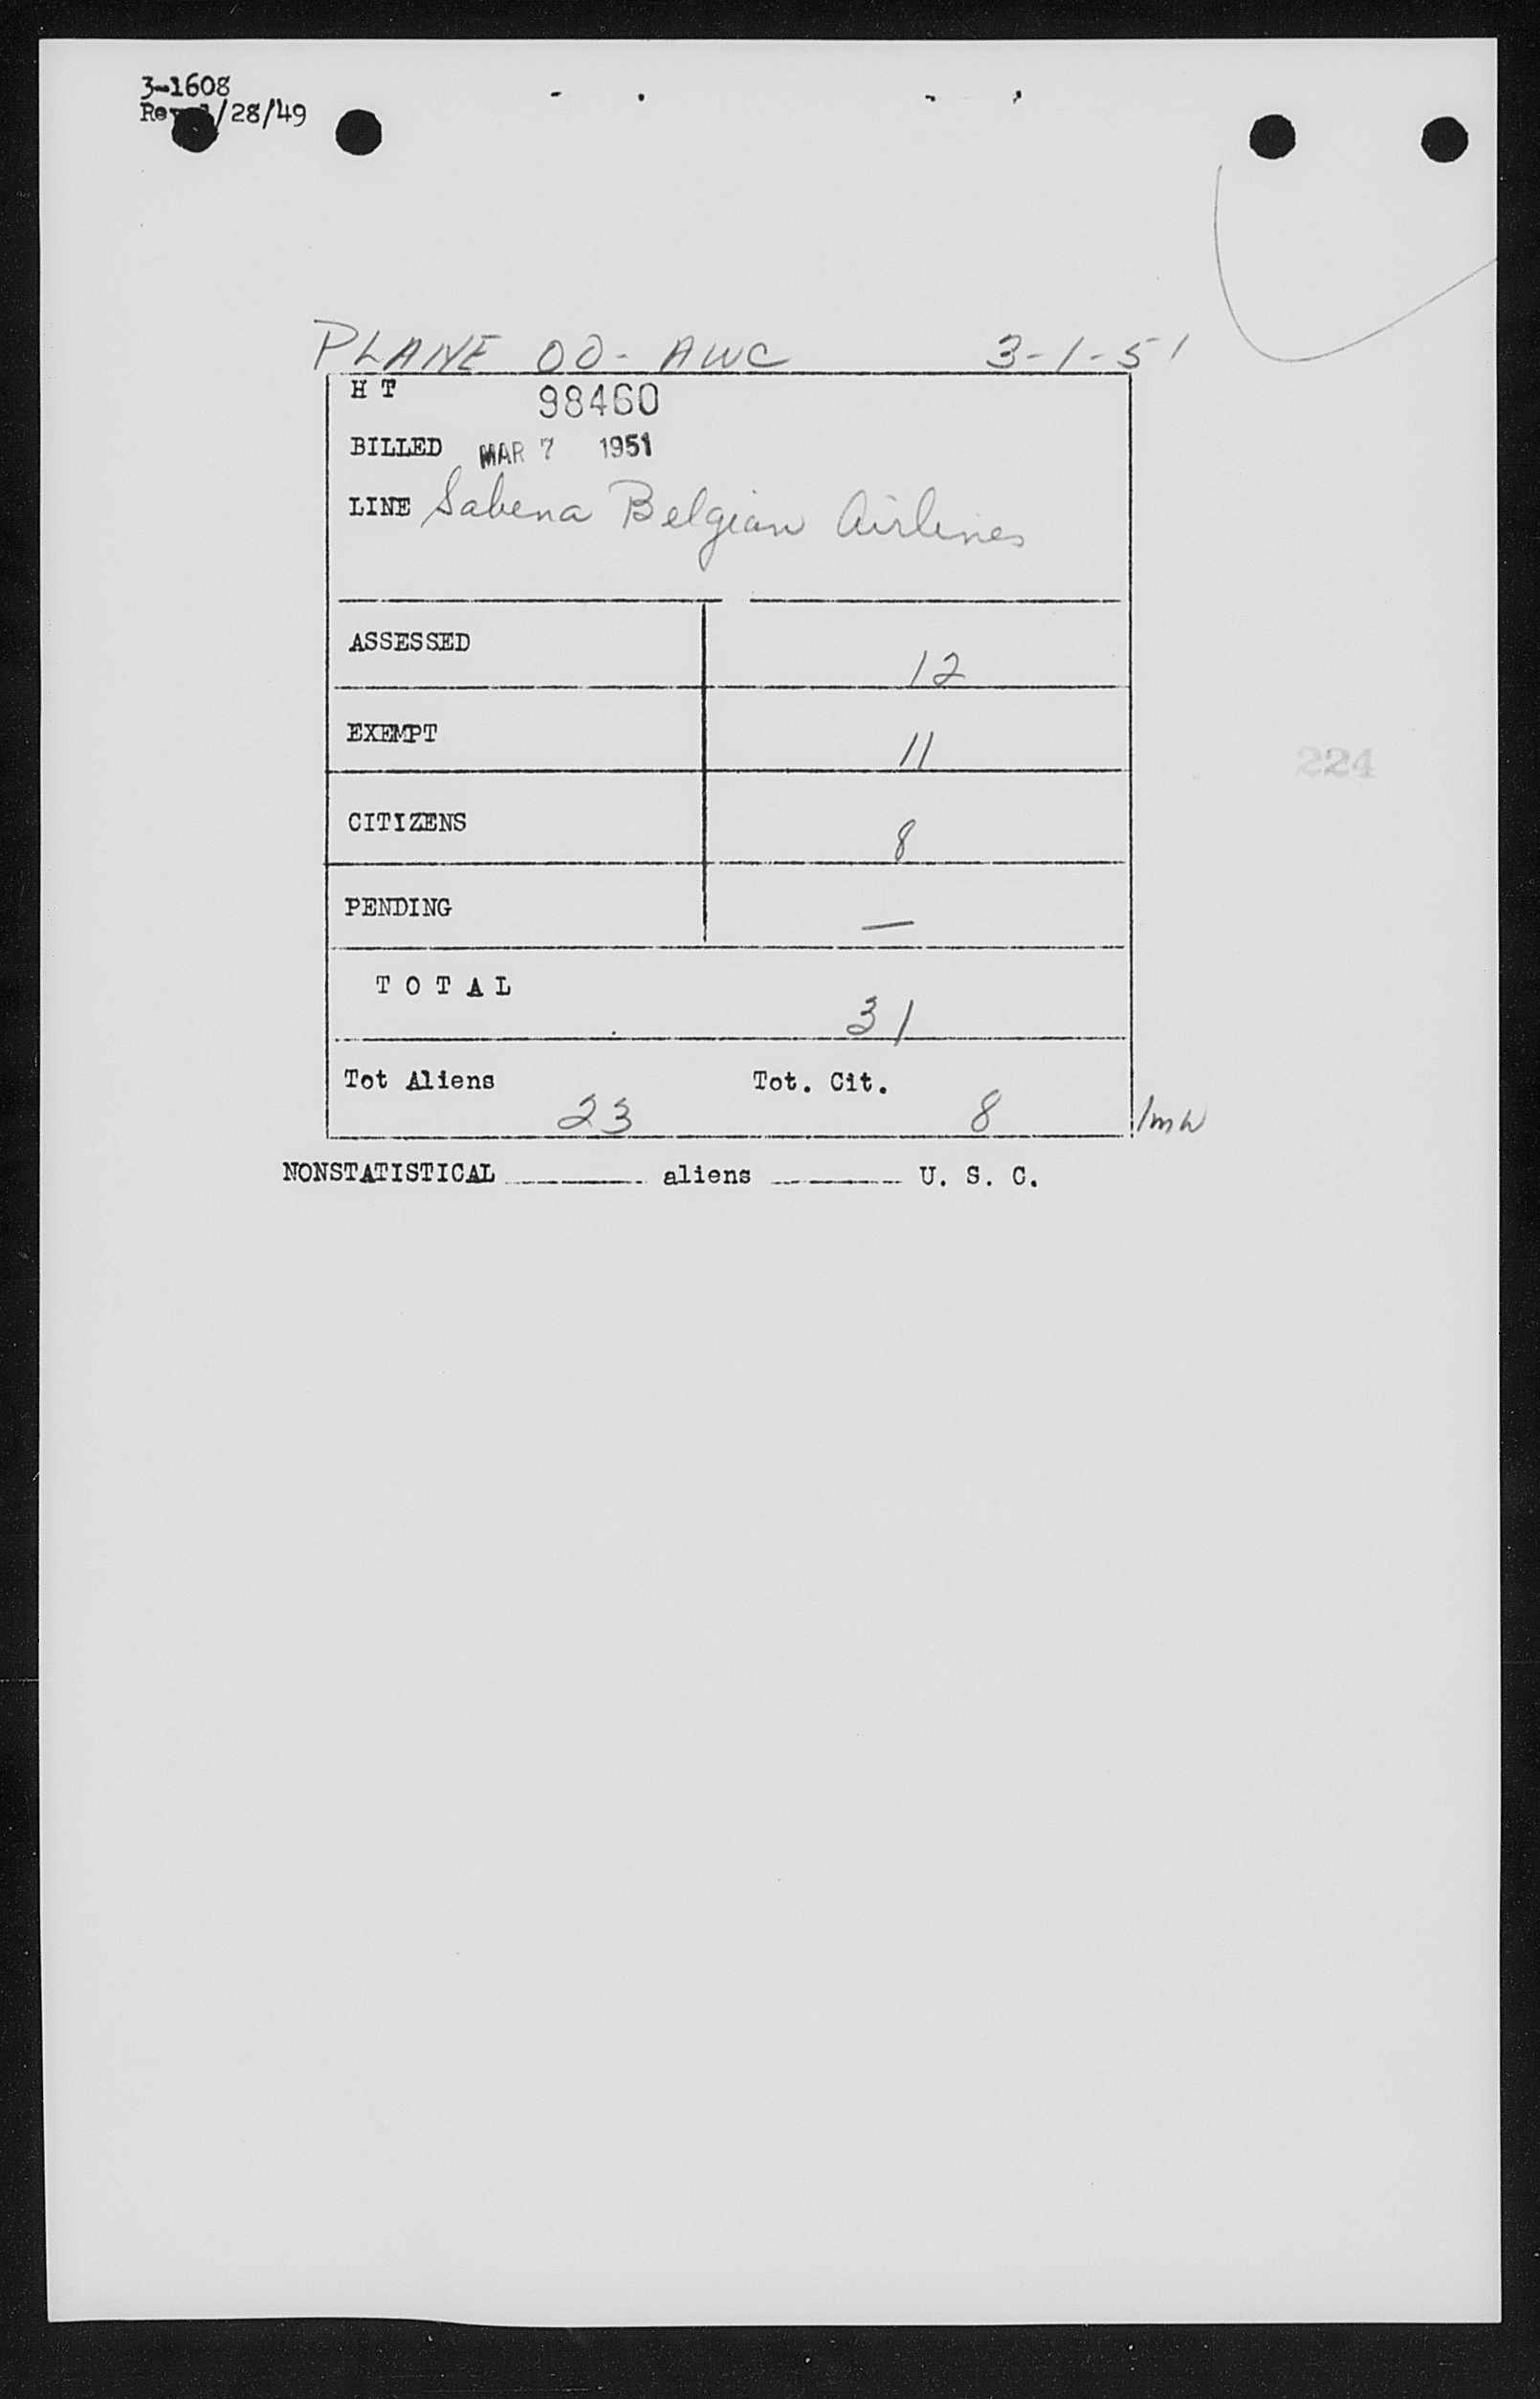 3-1608
/28/49
PLANE OO-AWC 3-1-51
H T 98460
BILLED MAR 7 1951
LINE Sabena Belgian Airlines
ASSESSED 12
EXEMPT 11
224
CITIZENS 8
PENDING —
TOTAL 31
Tot Aliens 23 Tot. Cit. 8
NONSTATISTICAL ________ aliens ________ U. S. C.